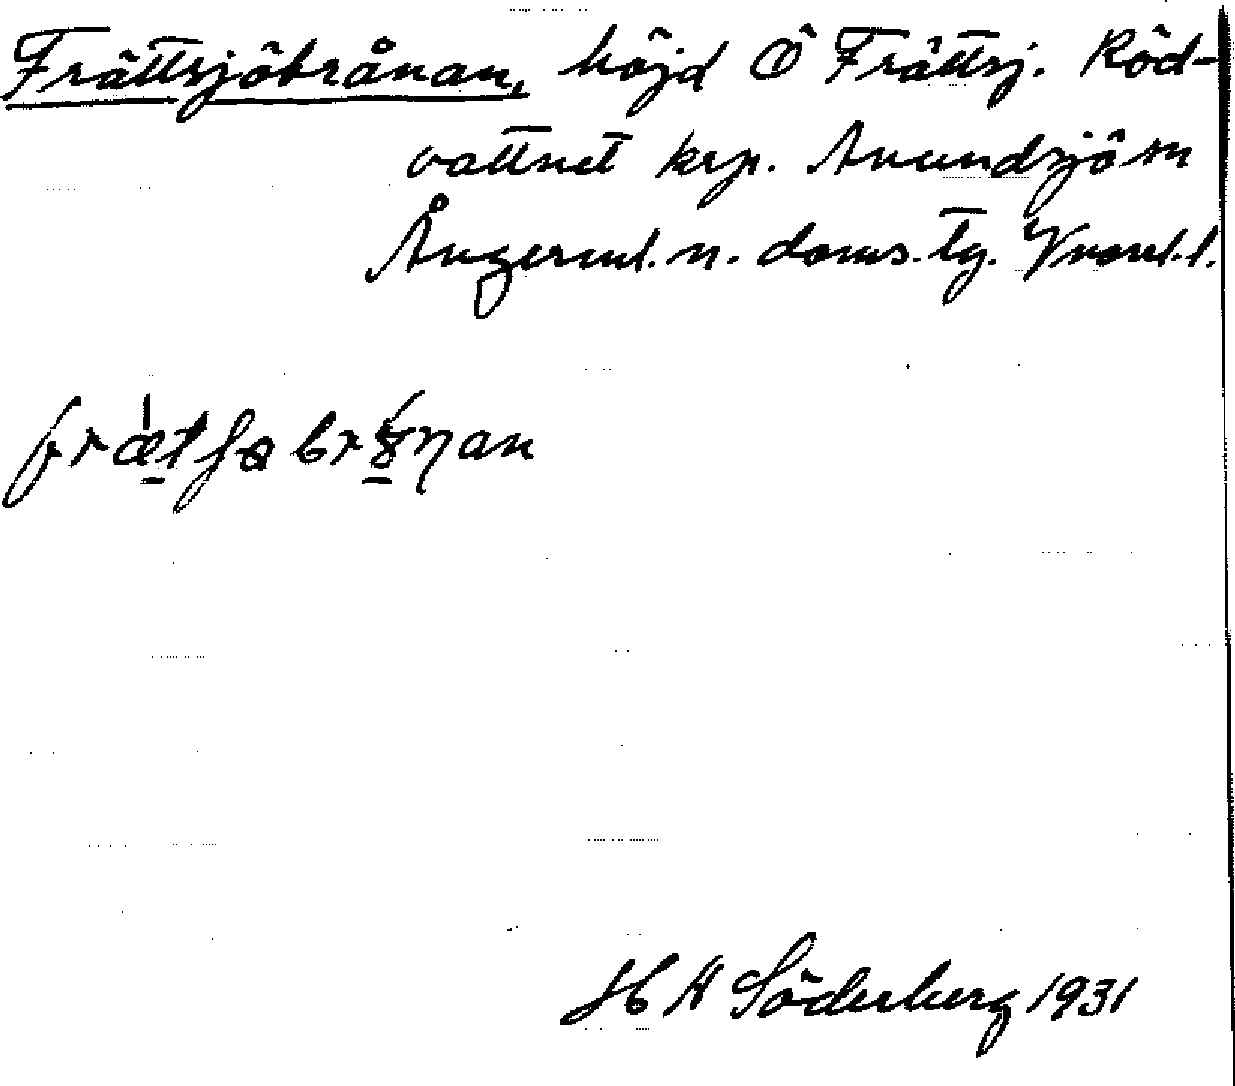 Frättsjöbrånan, höjd Ö Frättsj. Röd-
vattnet krp. Anundsjö sn
Ångerml. n. doms. tg. Vnorrl. l.
H A Söderberg 1931